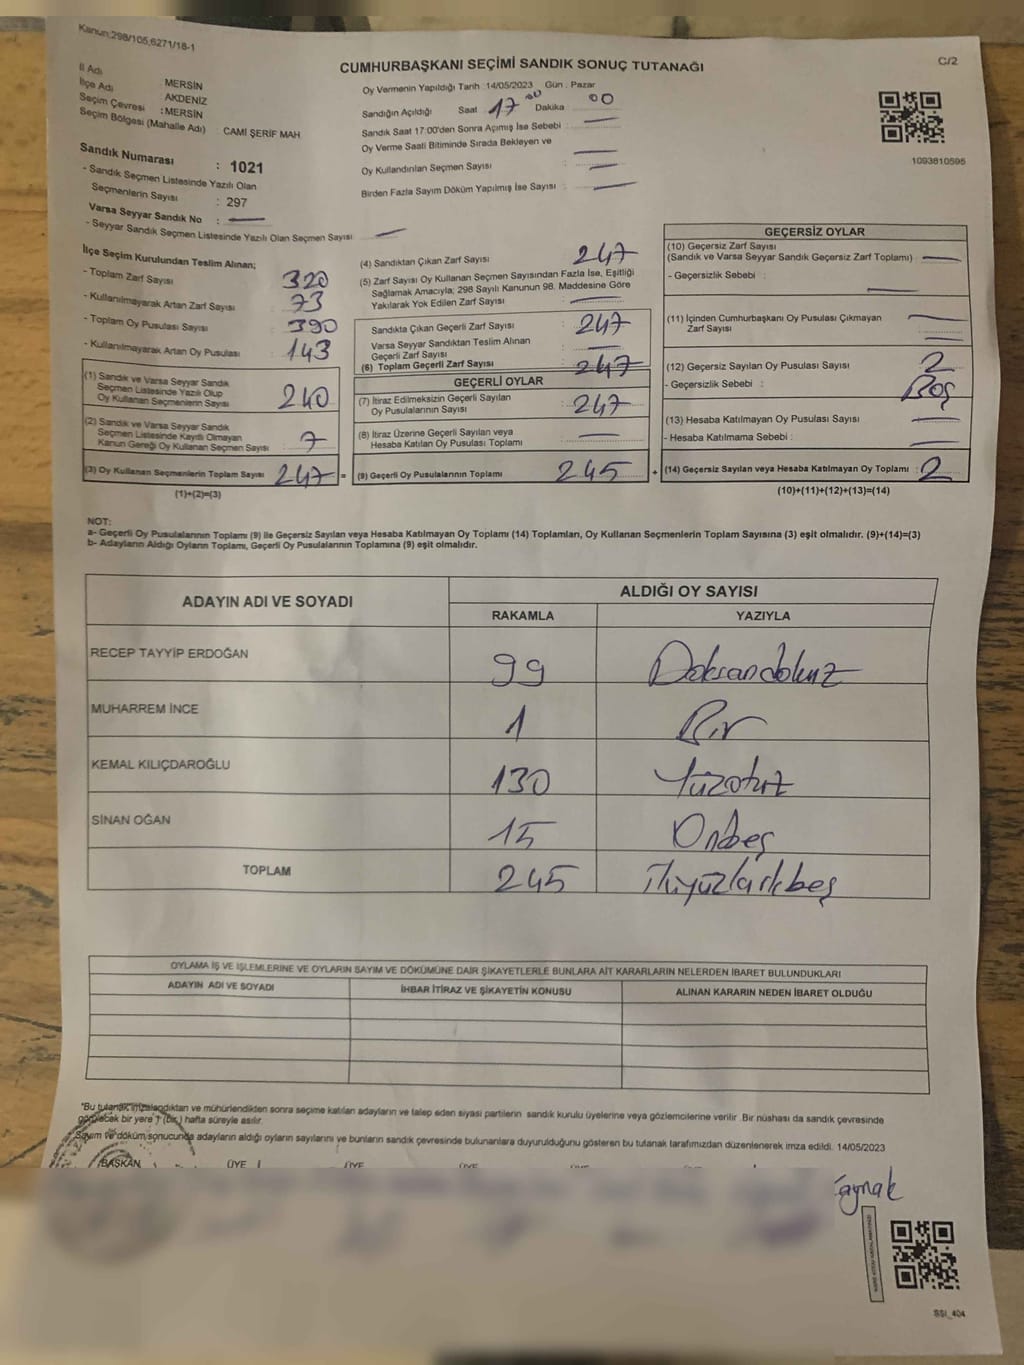 Kanun;298/105,6271/18-1
CUMHURBAŞKANI SEÇİMİ SANDIK SONUÇ TUTANAĞI
C/2
İl Adı : MERSİN
İlçe Adı : AKDENİZ
Seçim Çevresi : MERSİN
Seçim Bölgesi (Mahalle Adı) : CAMİ ŞERİF MAH.
Oy Vermenin Yapıldığı Tarih :14/05/2023 Gün : Pazar
Sandığın Açıldığı Saat 17 00 Dakika 00
Sandık Saat 17:00'den Sonra Açımış İse Sebebi : —
Oy Verme Saati Bitiminde Sırada Bekleyen ve
Oy Kullandırılan Seçmen Sayısı : —
Birden Fazla Sayım Döküm Yapılmış İse Sayısı : —
1093810595
Sandık Numarası : 1021
- Sandık Seçmen Listesinde Yazılı Olan
Seçmenlerin Sayısı : 297
Varsa Seyyar Sandık No : —
- Seyyar Sandık Seçmen Listesinde Yazılı Olan Seçmen Sayısı : —
İlçe Seçim Kurulundan Teslim Alınan;
- Toplam Zarf Sayısı : 320
- Kullanılmayarak Artan Zarf Sayısı : 73
- Toplam Oy Pusulası Sayısı : 390
- Kullanılmayarak Artan Oy Pusulası : 143
(1) Sandık ve Varsa Seyyar Sandık
Seçmen Listesinde Yazılı Olup
Oy Kullanan Seçmenlerin Sayısı : 240
(2) Sandık ve Varsa Seyyar Sandık
Seçmen Listesinde Kayıtlı Olmayan
Kanun Gereği Oy Kullanan Seçmen Sayısı : 7
(3) Oy Kullanan Seçmenlerin Toplam Sayısı : 247 =
(1)+(2)=(3)
(4) Sandıktan Çıkan Zarf Sayısı : 247
(5) Zarf Sayısı Oy Kullanan Seçmen Sayısından Fazla İse, Eşitliği
Sağlamak Amacıyla; 298 Sayılı Kanunun 98. Maddesine Göre
Yakılarak Yok Edilen Zarf Sayısı : —
Sandıkta Çıkan Geçerli Zarf Sayısı : 247
Varsa Seyyar Sandıktan Teslim Alınan
Geçerli Zarf Sayısı : —
(6) Toplam Geçerli Zarf Sayısı : 247
GEÇERLİ OYLAR
(7) İtiraz Edilmeksizin Geçerli Sayılan
Oy Pusulalarının Sayısı : 247
(8) İtiraz Üzerine Geçerli Sayılan veya
Hesaba Katılan Oy Pusulası Toplamı : —
(9) Geçerli Oy Pusulalarının Toplamı : 245 +
GEÇERSİZ OYLAR
(10) Geçersiz Zarf Sayısı
(Sandık ve Varsa Seyyar Sandık Geçersiz Zarf Toplamı) : —
- Geçersizlik Sebebi : —
(11) İçinden Cumhurbaşkanı Oy Pusulası Çıkmayan
Zarf Sayısı : —
(12) Geçersiz Sayılan Oy Pusulası Sayısı : 2
- Geçersizlik Sebebi : Boş
(13) Hesaba Katılmayan Oy Pusulası Sayısı : —
- Hesaba Katılmama Sebebi : —
(14) Geçersiz Sayılan veya Hesaba Katılmayan Oy Toplamı : 2
(10)+(11)+(12)+(13)=(14)
NOT:
a- Geçerli Oy Pusulalarının Toplamı (9) ile Geçersiz Sayılan veya Hesaba Katılmayan Oy Toplamı (14) Toplamları, Oy Kullanan Seçmenlerin Toplam Sayısına (3) eşit olmalıdır. (9)+(14)=(3)
b- Adayların Aldığı Oyların Toplamı, Geçerli Oy Pusulalarının Toplamına (9) eşit olmalıdır.
ADAYIN ADI VE SOYADI
ALDIĞI OY SAYISI
RAKAMLA YAZIYLA
RECEP TAYYİP ERDOĞAN 99 Doksandokuz
MUHARREM İNCE 1 Bir
KEMAL KILIÇDAROĞLU 130 Yüzotuz
SİNAN OĞAN 15 Onbeş
TOPLAM 245 ikiyüzkırkbeş
OYLAMA İŞ VE İŞLEMLERİNE VE OYLARIN SAYIM VE DÖKÜMÜNE DAİR ŞİKAYETLERLE BUNLARA AİT KARARLARIN NELERDEN İBARET BULUNDUKLARI
ADAYIN ADI VE SOYADI İHBAR İTİRAZ VE ŞİKAYETİN KONUSU ALINAN KARARIN NEDEN İBARET OLDUĞU
"Bu tutanak imzalandıktan ve mühürlendikten sonra seçime katılan adayların ve talep eden siyasi partilerin sandık kurulu üyelerine veya gözlemcilerine verilir. Bir nüshası da sandık çevresinde
görülecek bir yere 1 (bir ) hafta süreyle asılır.
Sayım ve döküm sonucunda adayların aldığı oyların sayılarını ve bunların sandık çevresinde bulunanlara duyurulduğunu gösteren bu tutanak tarafımızdan düzenlenerek imza edildi. 14/05/2023
BAŞKAN ÜYE ÜYE ÜYE
Kaynak
SSI_404